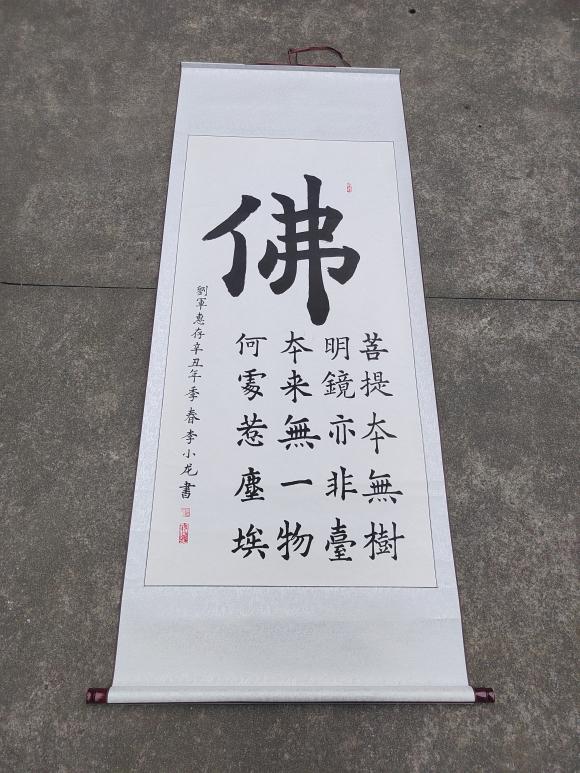 佛
菩提夲無樹
明鏡亦非臺
夲来無一物
何處惹塵埃
劉軍惠存辛丑年季春李小龙書